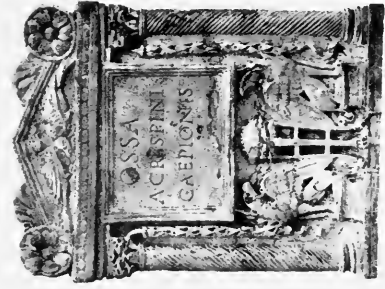 OSSA
A CRISPINI
CAEPIONIS